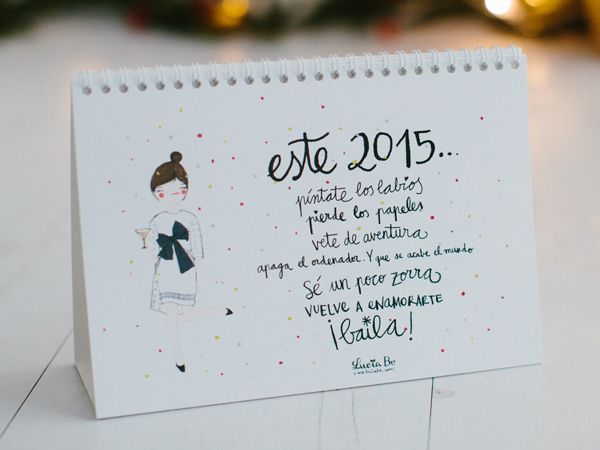 este 2015...
píntate los labios
pierde los papeles
vete de aventura
apaga el ordenador. Y que se acabe el mundo
Sé un poco zorra
VUELVE A ENAMORARTE
¡baila!
Lucía Be
www.luciabe.com